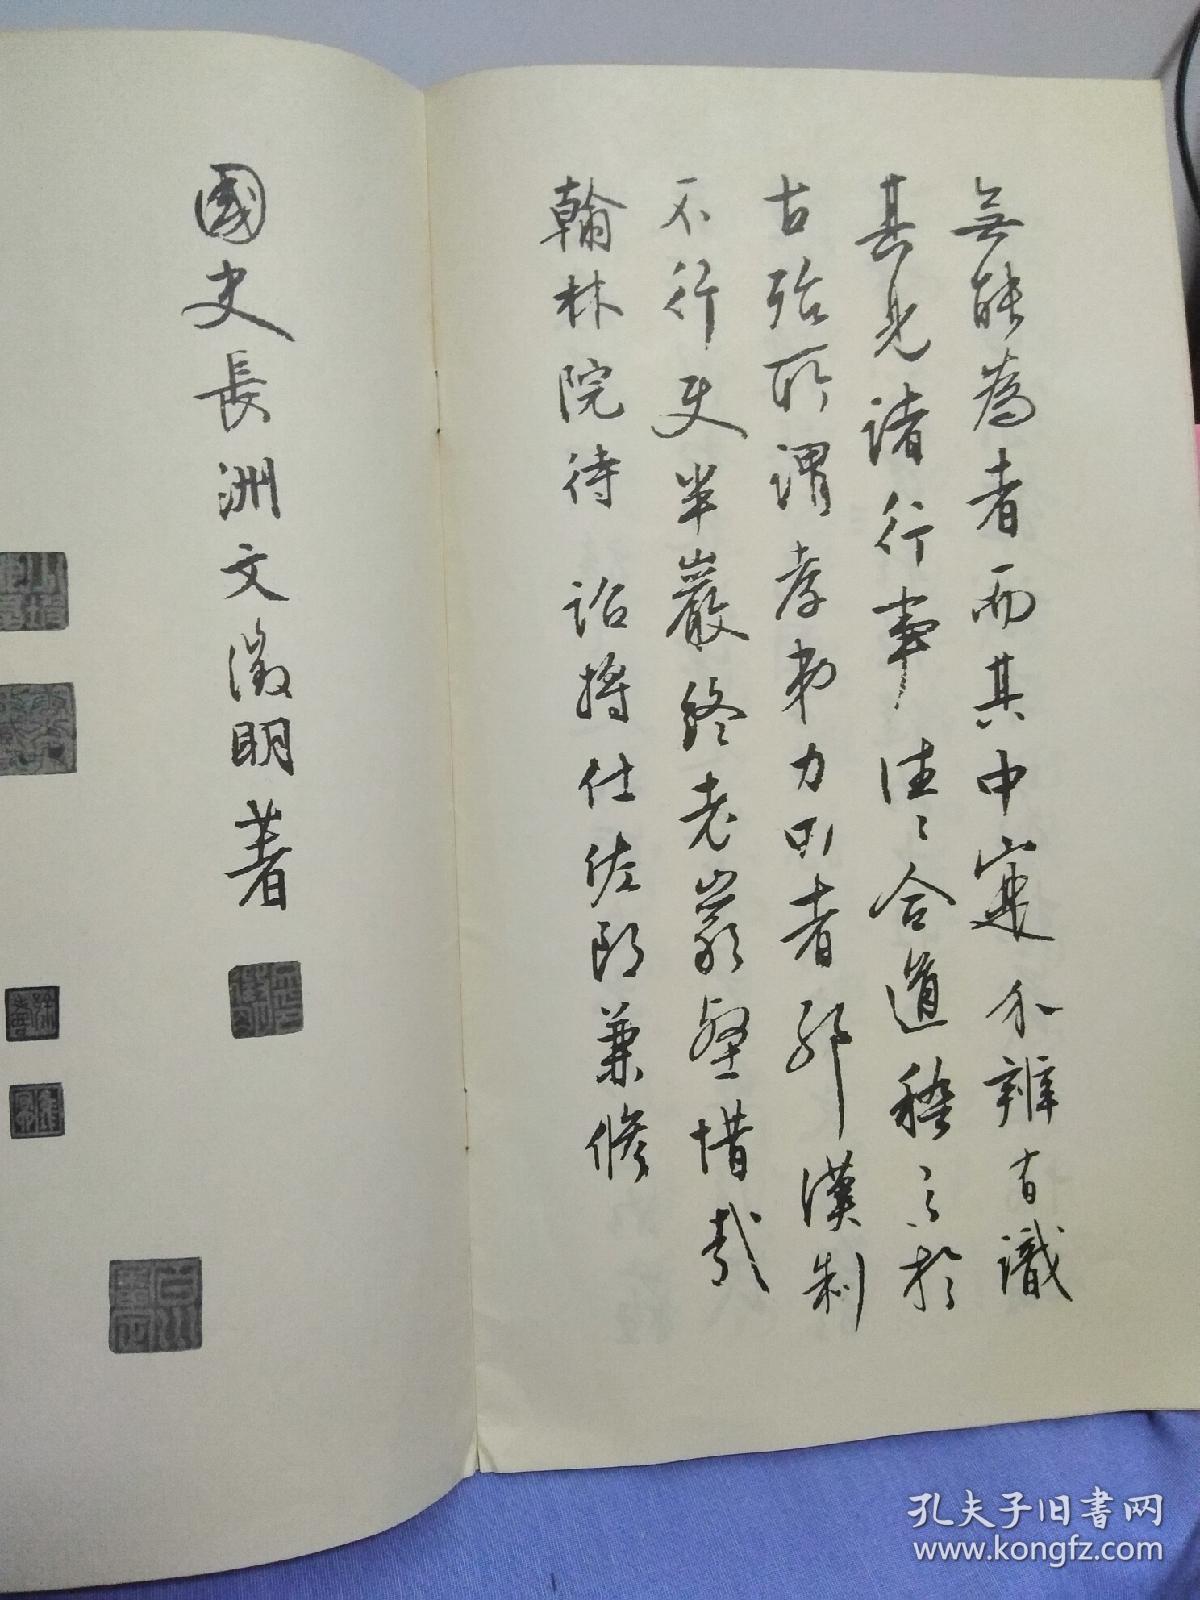 無能為者而其中寔介辨有識
其見諸行事往〻合道稽之於
古殆所謂孝弟力田者邪漢制
不行史半巖終老巖壑惜哉
翰林院待 詔將仕佐郎兼脩
國史長洲文徵明著
孔夫子旧书网
www.kongfz.com